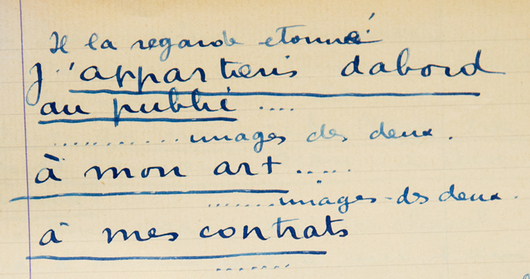 Il la regarde etonné
J'appartiens dabord
au public ....
........... images des deux.
à mon art ......
....... images des deux.
à mes contrats
.......